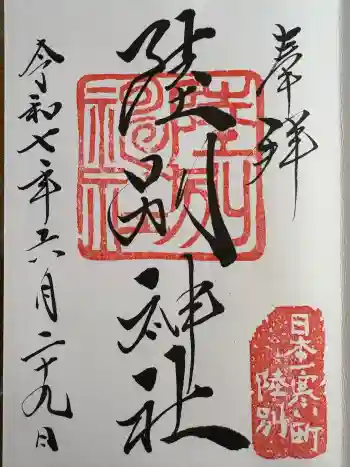 奉拝
陸別神社
陸別
神社
令和七年六月二十九日
日本一寒い町
陸別